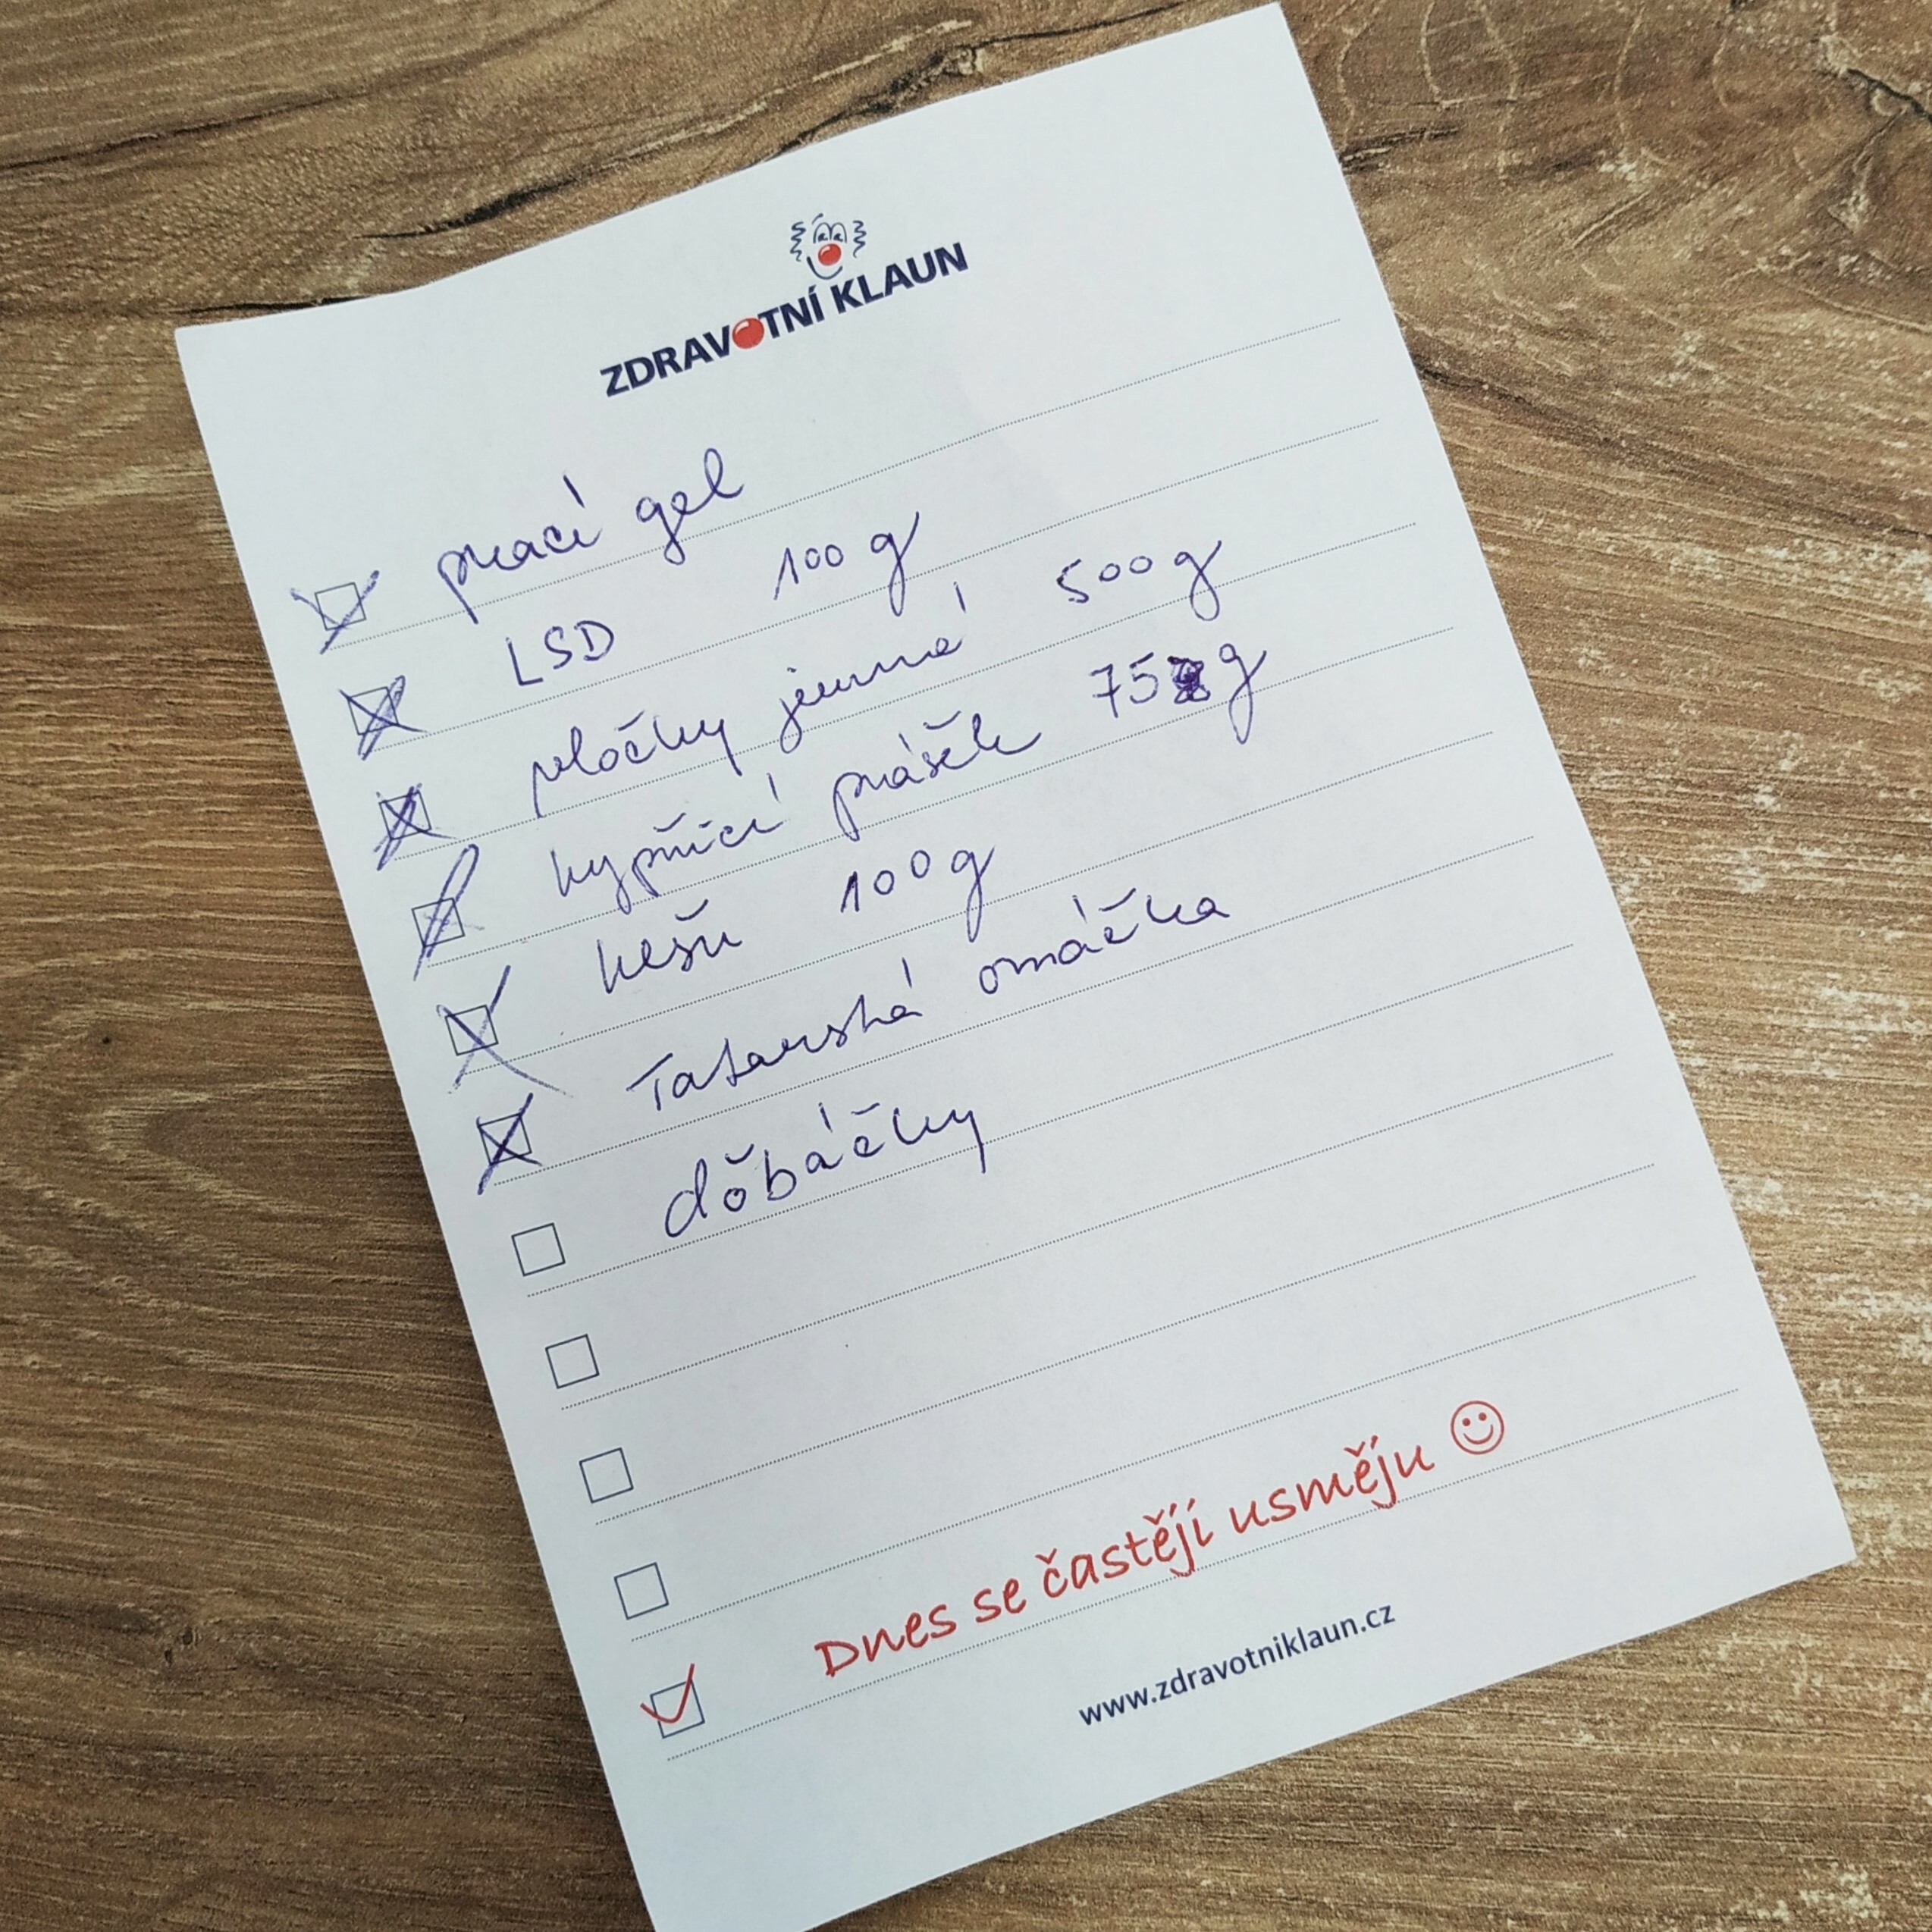 ZDRAVOTNÍ KLAUN
prací gel
LSD 100 g
vločky jemné 500 g
kypřicí prášek 75 g
kešu 100 g
Tatarská omáčka
dŏbáčky
Dnes se častěji usměju
www.zdravotniklaun.cz